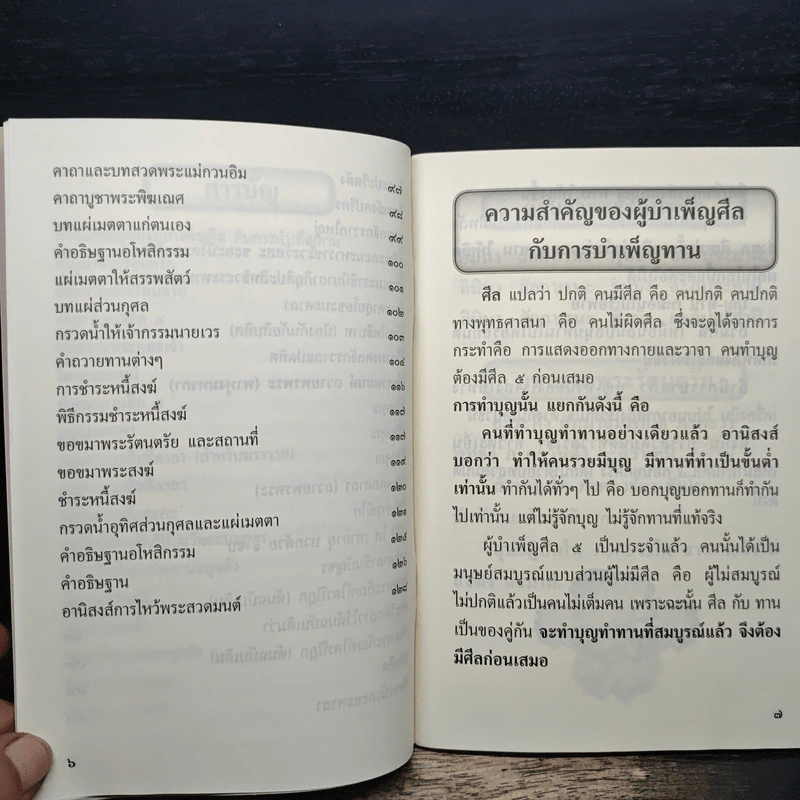 คาถาและบทสวดพระแม่กวนอิม ๙๗
คาถาบูชาพระพิฆเณศ ๙๘
บทแผ่เมตตาแก่ตนเอง ๙๙
คำอธิษฐานอโหสิกรรม ๑๐๐
แผ่เมตตาให้สรรพสัตว์ ๑๐๑
บทแผ่ส่วนกุศล ๑๐๒
กรวดน้ำให้เจ้ากรรมนายเวร ๑๐๓
คำถวายทานต่างๆ ๑๐๔
การชำระหนี้สงฆ์ ๑๑๖
พิธีกรรมชำระหนี้สงฆ์ ๑๑๗
ขอขมาพระรัตนตรัย และสถานที่ ๑๑๗
ขอขมาพระสงฆ์ ๑๑๙
ชำระหนี้สงฆ์ ๑๒๐
กรวดน้ำอุทิศส่วนกุศลและแผ่เมตตา ๑๒๑
คำอธิษฐานอโหสิกรรม ๑๒๕
คำอธิษฐาน ๑๒๖
อานิสงส์การไหว้พระสวดมนต์ ๑๒๘
๖
ความสำคัญของผู้บำเพ็ญศีล
กับการบำเพ็ญทาน
ศีล แปลว่า ปกติ คนมีศีล คือ คนปกติ คนปกติ
ทางพุทธศาสนา คือ คนไม่ผิดศีล ซึ่งจะดูได้จากการ
กระทำคือ การแสดงออกทางกายและวาจา คนทำบุญ
ต้องมีศีล ๕ ก่อนเสมอ
การทำบุญนั้น แยกกันดังนี้ คือ
คนที่ทำบุญทำทานอย่างเดียวแล้ว อานิสงส์
บอกว่า ทำให้คนรวยมีบุญ มีทานที่ทำเป็นขั้นต่ำ
เท่านั้น ทำกันได้ทั่วๆ ไป คือ บอกบุญบอกทานก็ทำกัน
ไปเท่านั้น แต่ไม่รู้จักบุญ ไม่รู้จักทานที่แท้จริง
ผู้บำเพ็ญศีล ๕ เป็นประจำแล้ว คนนั้นได้เป็น
มนุษย์สมบูรณ์แบบส่วนผู้ไม่มีศีล คือ ผู้ไม่สมบูรณ์
ไม่ปกติแล้วเป็นคนไม่เต็มคน เพราะฉะนั้น ศีล กับ ทาน
เป็นของคู่กัน จะทำบุญทำทานที่สมบูรณ์แล้ว จึงต้อง
มีศีลก่อนเสมอ
๗